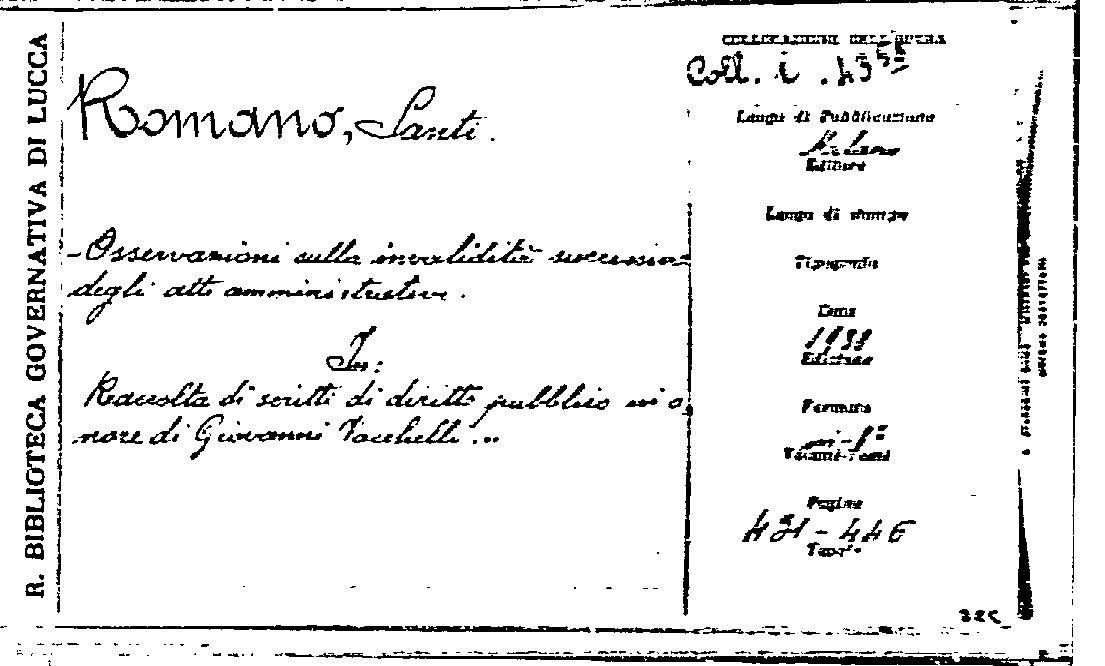 R. BIBLIOTECA GOVERNATIVA DI LUCCA
Romano, Santi.
- Osservazioni sulla invalidità successiva
degli atti amministrativi.
In:
Raccolta di scritti di diritto pubblico in o-
nore di Giovanni Vacchelli...
COLLOCAZIONE DELL'OPERA
Coll. i . 43
Luogo di Pubblicazione
Milano
Editore
Luogo di stampa
Tipografia
Data
1938
Edizione
Formato
in-8°
Volumi-Tomi
Pagine
431 - 446
Tavole